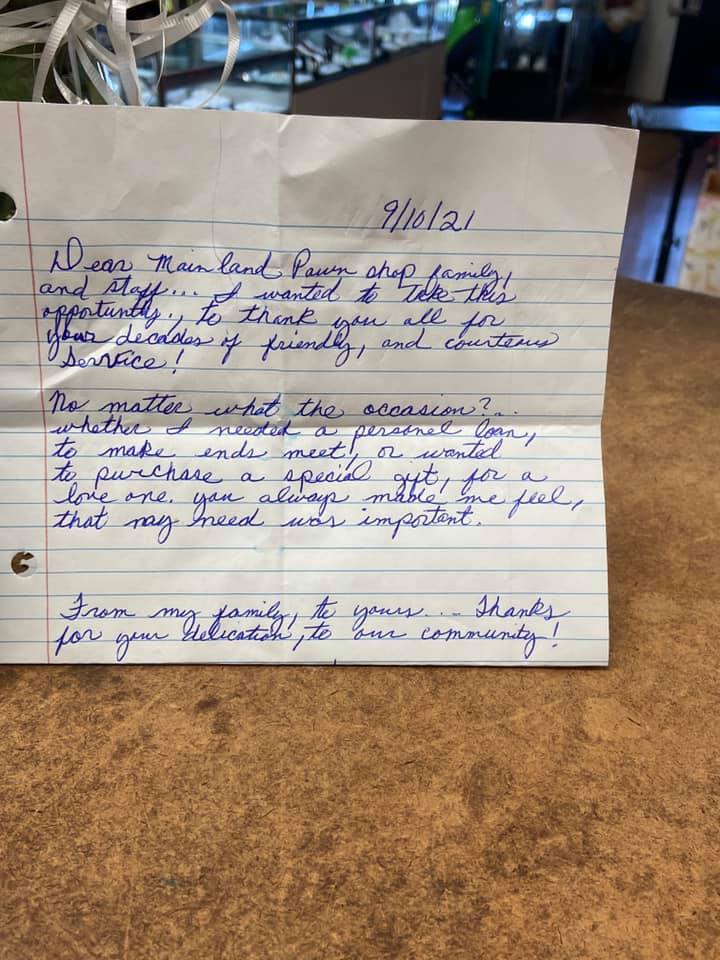 9/10/21
Dear Mainland Pawn shop family,
and staff... I wanted to take this
opportunity., to thank you all for
your decades of friendly, and courteous
Service!
No matter what the occasion?..
whether I needed a personel loan,
to make ends meet!, or wanted
to purchase a special gift, for a
love one. you always made me feel,
that my need was important.
From my family, to yours.... Thanks
for your delication, to our community!